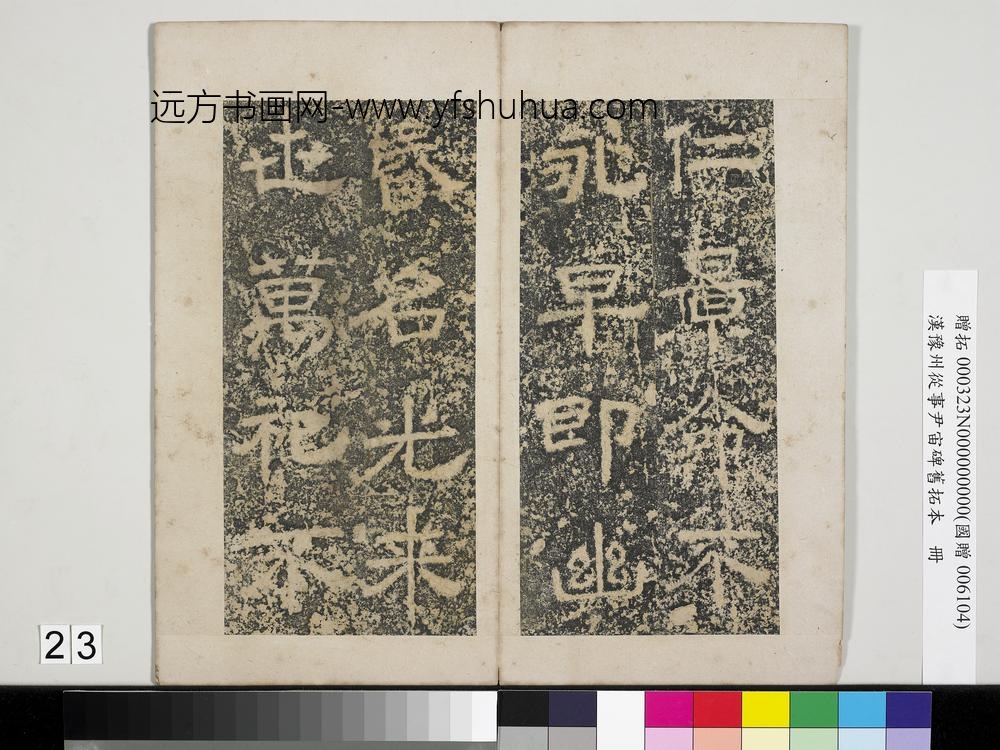 远方书画网-www.yfshuhua.com
仁景命不
永早即幽
昬名光来
世萬祀不
贈拓 000323N000000000(國贈 006104)
漢豫州從事尹宙碑舊拓本 冊
23